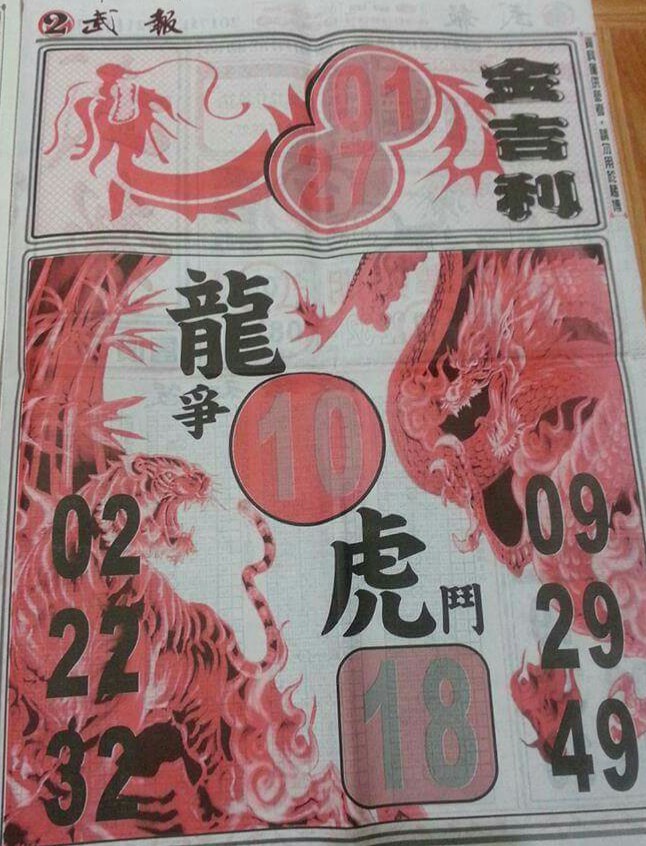 2 武報
金吉利
01
27
資料僅供參考,請勿用於賭博
龍爭
10
虎鬥
18
02
22
32
09
29
49